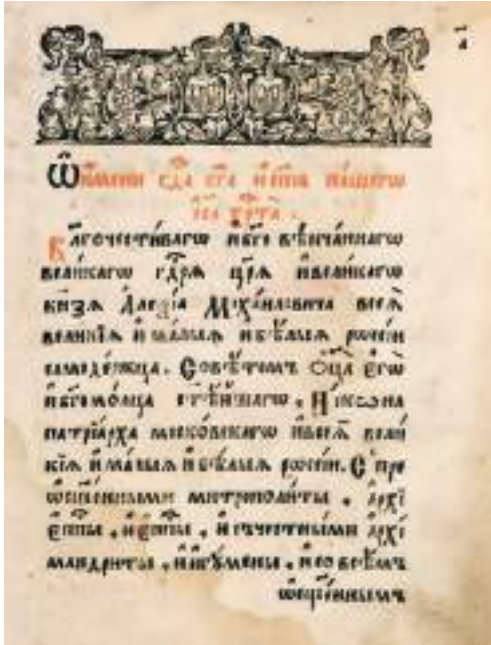 Ѡ҆ имени гдⷭ҇а бг҃а и҆ сп҃са на́шегѡ
і҆и҃са хрⷭ҇та̀ .
Бл҃гочести́вагѡ и҆ бг҃о вѣнча́ннагѡ
вели́кагѡ гдⷭ҇рѧ цр҃ѧ̀ и҆ вели́кагѡ
кнѧ́зѧ А҆леѯі́а Мїха́иловича всеѧ̀
вели́кїѧ и҆ ма́лыѧ и҆ бѣ́лыѧ рѡсі́и
самоде́ржца . Совѣ́томъ ѻ҆ц҃а̀ є҆гѡ̀
и҆ бг҃омо́лца ст҃ѣ́йшагѡ , Ні́кѡна
патрїа́рха моско́вскагѡ и҆ всеѧ̀ вели́
кїѧ и҆ ма́лыѧ и҆ бѣ́лыѧ рѡсі́и . С̾ пре
ѡ҆сщ҃е́нными митрополи́ты , а҆рхї
є҆пⷭ҇пы , и҆ є҆пⷭ҇пы , и҆ съ честны́ми а҆рхї
мандри́ты , и҆ и҆гꙋ́мены , и҆ со всѣ́мъ
ѡ҆сщ҃е́ннымъ